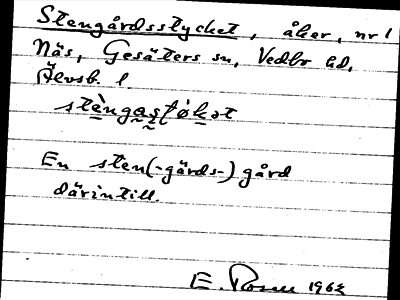 Stengårdsstycket, åker, nr 1
Näs, Gesäters sn, Vedbo hd,
Älvsb. l.
stèngastøkət
En sten(-gärds-)gård
därintill.
E. 1962